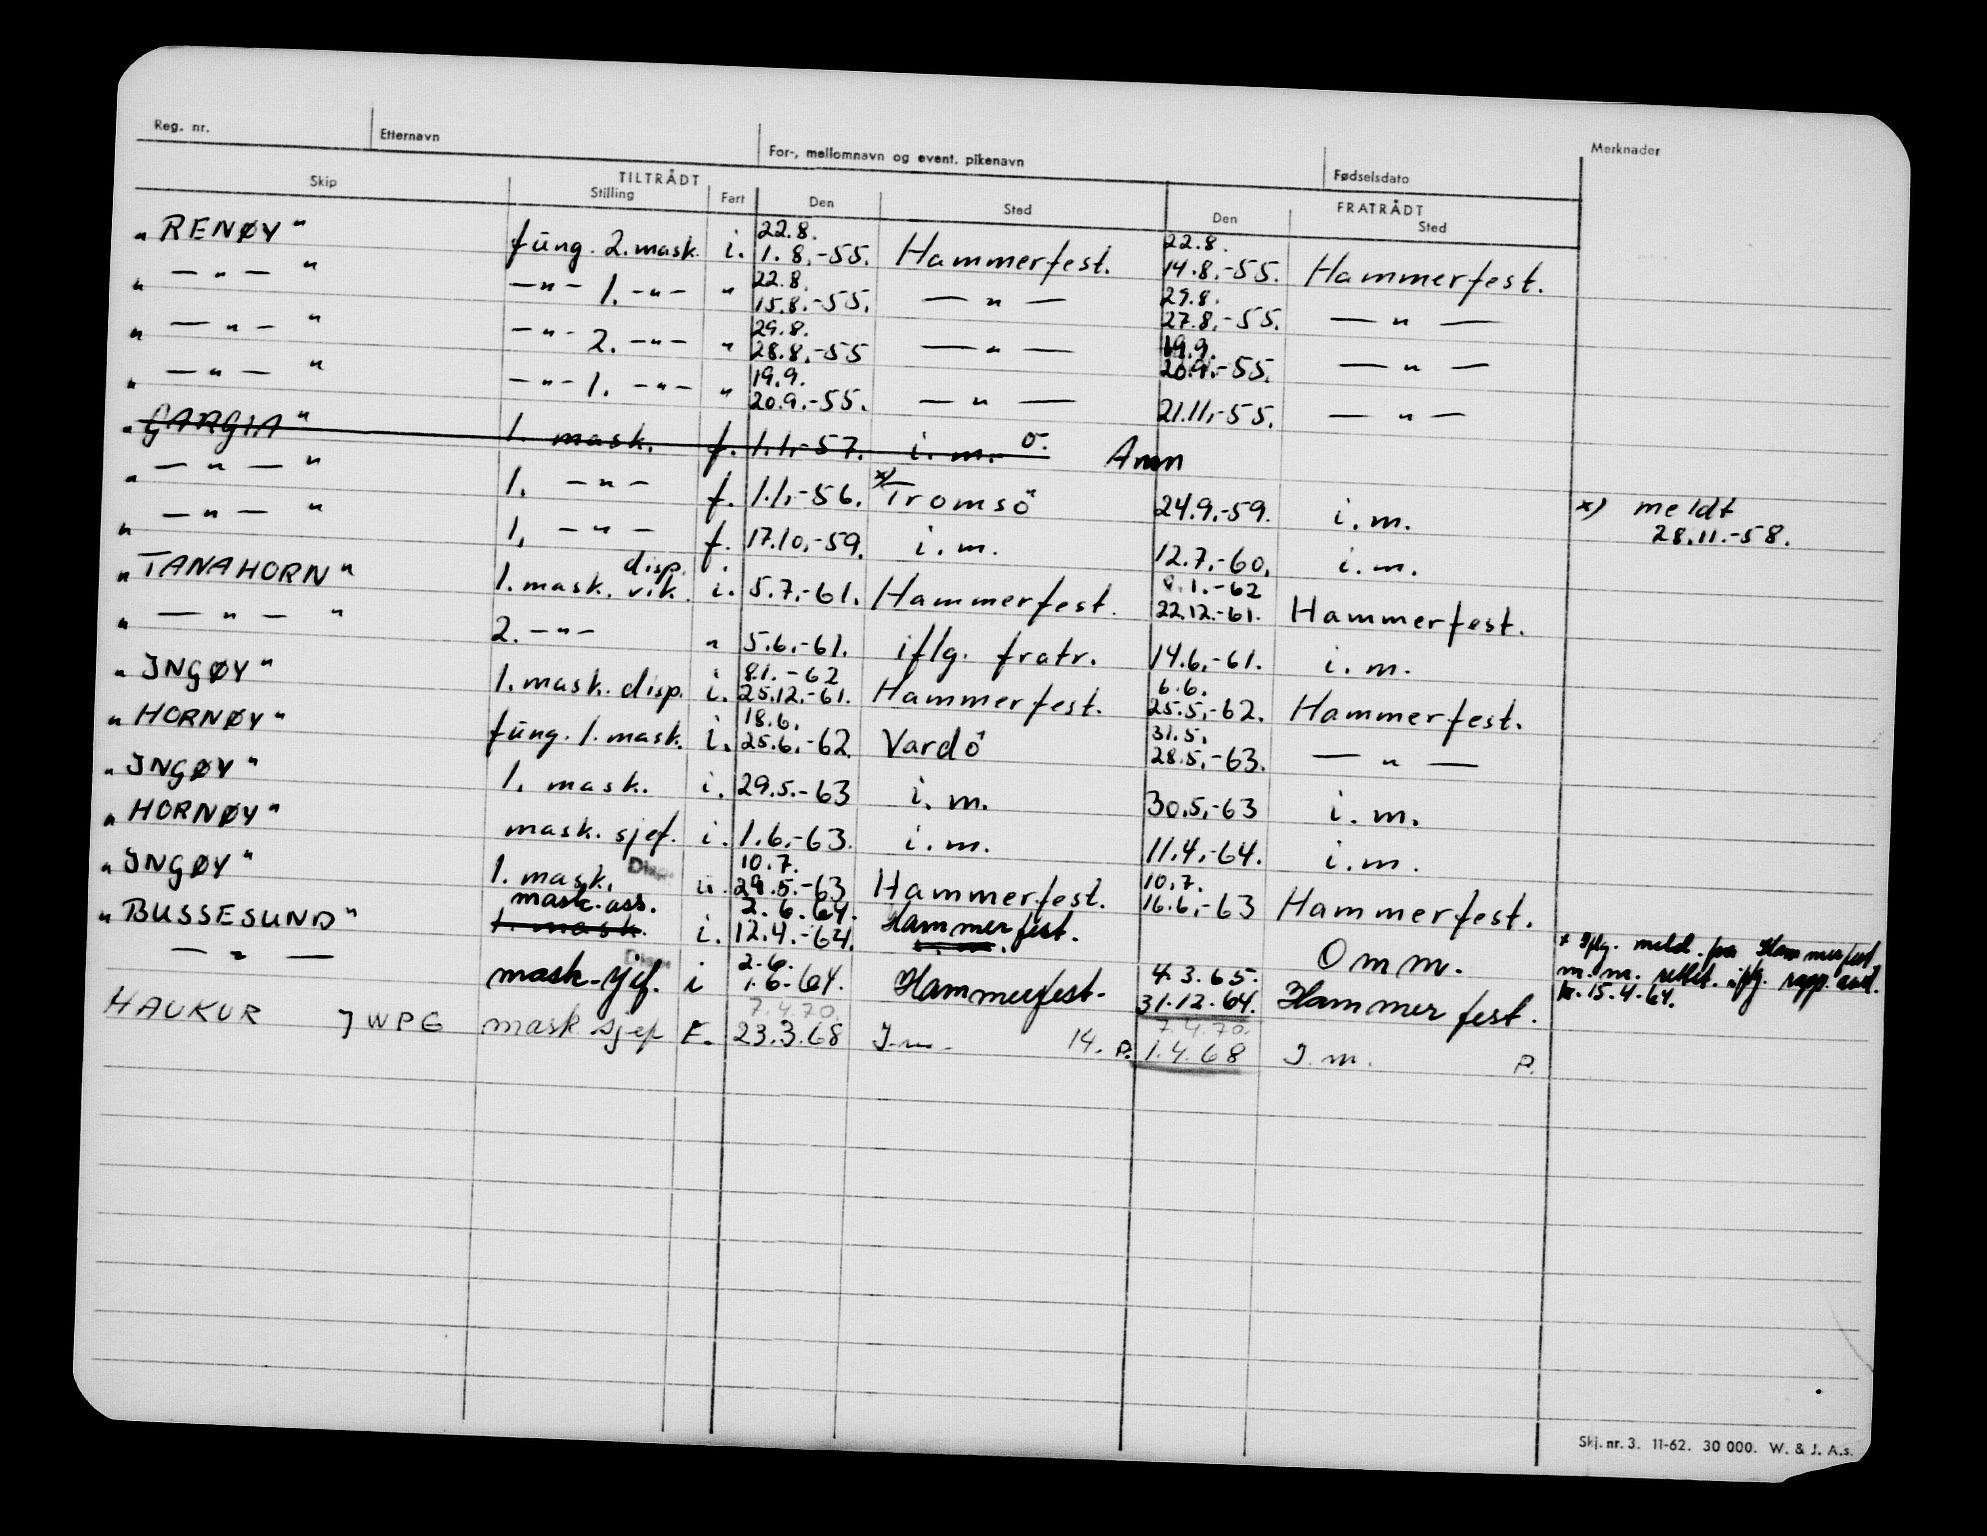 Reg. nr. Etternavn For-, mellomnavn og event. pikenavn Fødselsdato Merknader
TILTRÅDT FRATRÅDT
Skip Stilling Fart Den Sted Den Sted
22.8. 22.8.
"RENØY" fung. 2. mask. i. 1.8.-55. Hammerfest. 14.8.-55. Hammerfest.
22.8. 29.8.
" — " — " — " - 1. — " — " 15.8.-55. — " — 27.8.-55. — " —
29.8. 19.9.
" — " — " — " - 2. — " — " 28.8.-55 — " — 20.9.-55. — " —
19.9.
" — " — " — " - 1. — " — " 20.9.-55. — " — 21.11.-55. — " —
"GARGIA" 1. mask. f. 1.1.-57. i. m. o. Ann
" — " — " 1. — " — f. 1.1.-56. x) Tromsö 24.9.-59. i. m. x) meldt
28.11.-58.
" — " — " 1. — " — f. 17.10.-59. i. m. 12.7.-60. i. m.
disp. 8.1.-62
"TANAHORN" 1. mask. vik. i. 5.7.-61. Hammerfest. 22.12.-61. Hammerfest.
" — " — " 2. — " — " 5.6.-61. iflg. fratr. 14.6.-61. i. m.
8.1.-62 6.6.
"INGØY" 1. mask. disp. i. 25.12.-61. Hammerfest. 25.5.-62. Hammerfest.
18.6. 31.5.
"HORNØY" fung. 1. mask. i. 25.6.-62 Vardö 28.5.-63. — " —
"INGØY" 1. mask. i. 29.5.-63 i. m. 30.5.-63 i. m.
"HORNØY" mask. sjef. i. 1.6.-63. i. m. 11.4.-64. i. m.
Disp. 10.7. 10.7.
"INGØY" 1. mask. i. 29.5.-63 Hammerfest. 16.6.-63 Hammerfest.
mask-ass. 2.6.64. Hammerfest.
"BUSSESUND" 1. mask. i. 12.4.-64. i. m. Omm. x Iflg. meld. fra Hammerfest
m. m. rettet. iflg. rapp.
15.4.64.
Disp. 2.6. 4.3.65.
— " — mask-sjef. i 1.6.64. Hammerfest. 31.12.64. Hammerfest.
7.4.70. 7.4.70.
HAUKUR JWPG mask sjef F. 23.3.68 I. m. 14. P. 1.4.68 I. m. P.
Skj. nr. 3. 11-62. 30 000. W. & J. A.s.